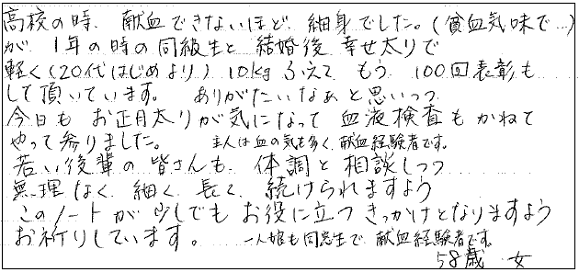 高校の時、献血できないほど、細身でした。(貧血気味で…)
が、1年の時の同級生と結婚後、幸せ太りで
軽く(20代はじめより)10kgふえて、もう、100回表彰も
して頂いています。ありがたいなあと思いつつ
今日もお正月太りが気になって血液検査もかねて
やって参りました。主人は血の気も多く、献血経験者です。
若い後輩の皆さんも、体調と相談しつつ
無理なく、細く、長く、続けられますよう
このノートが少しでもお役に立つきっかけとなりますよう
お祈りしています。一人娘も同窓生で、献血経験者です。
58歳 女